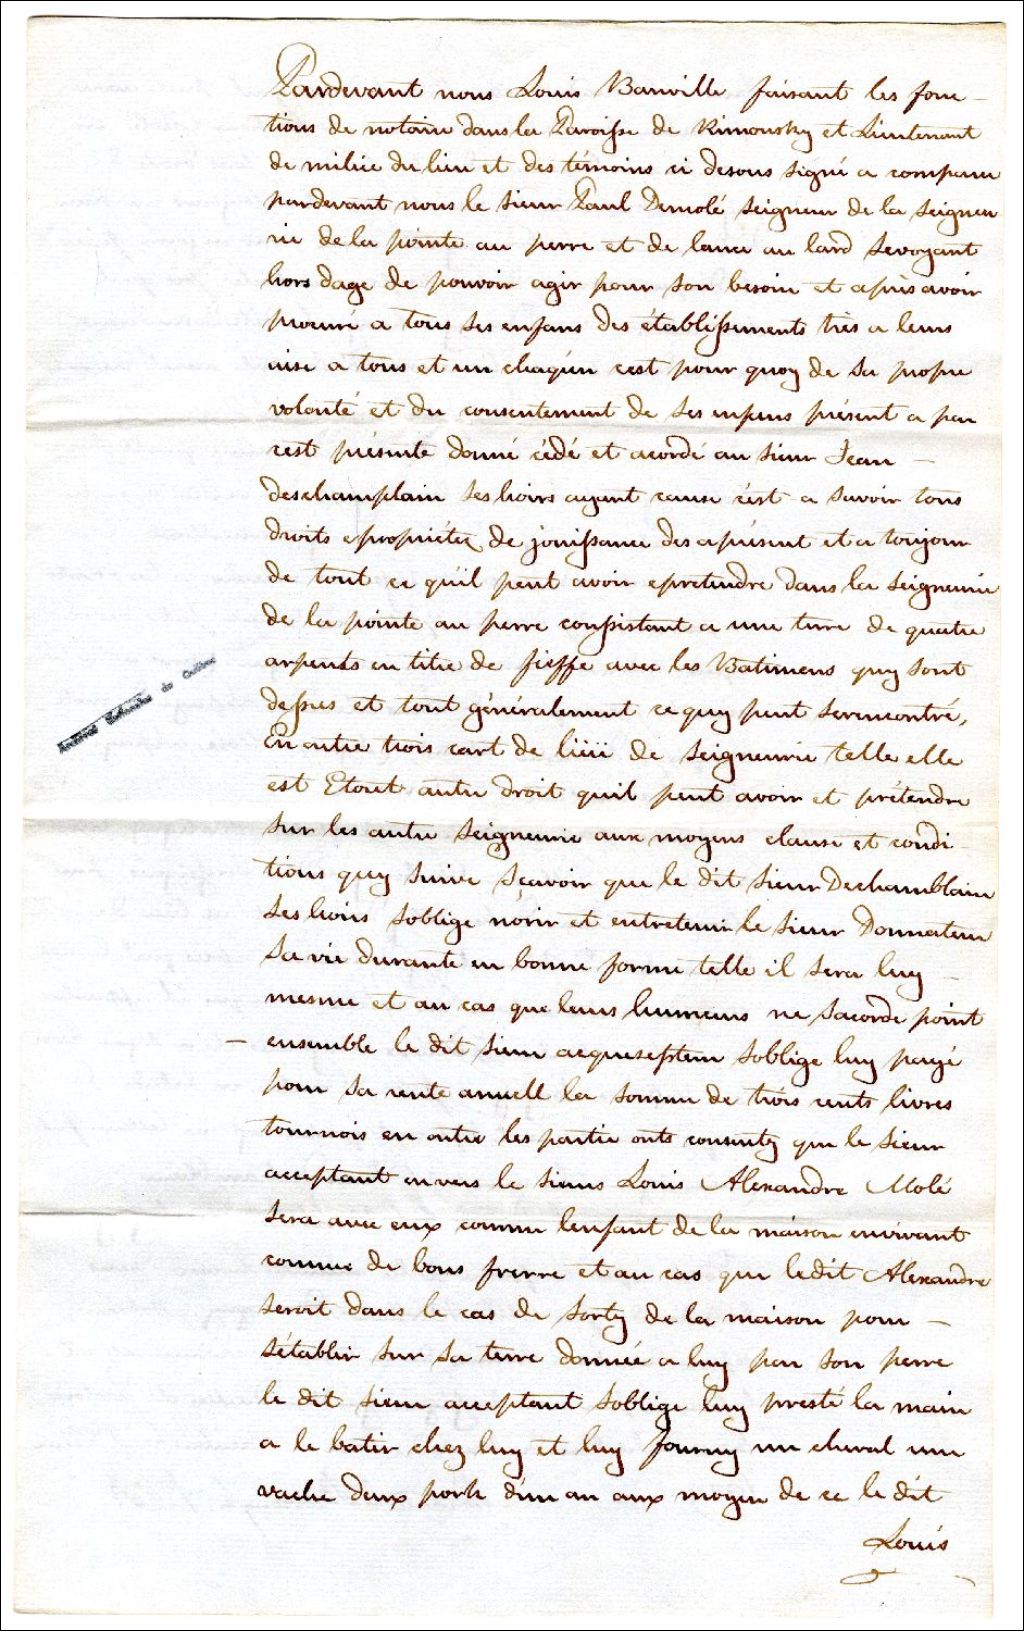 Pardevant nous Louis Banville faisant les fonc -
tions de notaire dans la Paroisse de Rimousky et Lieutenant
de milice du lieu et des témoins ci desous signé a comparu
pardevant nous le sieur Paul Demolé seigneur de la seigneu
rie de la pointe au perre et de lance au lard sevoyant
hors dage de pouvoir agir pour son besoin et après avoir
procuré a tous ses enfans des établissements très a leurs
aise a tous et un chaqún cest pour quoy de sa propre
volonté et du consentement de ses enfans présent a par
cest présente donné cédé et acordé au sieur Jean —
deschamplain ses hoirs ayant cause cést a savoir tous
droits epropriétez de jouissance des aprésent et a toujour
de tout ce quil peut avoir epretendre dans la seigneurie
de la pointe au perre conssistant a une terre de quatre
arpents en titre de fieffe avec les Batimens quy sont
dessus et tout généralement ce quy peut serencontré,
En outre trois cart de liüii de seigneurie telle elle
est Etout autre droit quil peut avoir et prétendre
sur les autre seigneurie aux moyens clause et condi -
tions quy suive sçavoir que le dit sieur Dechamblain
ses hoirs soblige norir et entretenir le sieur Donnateur
sa vie durante en bonne forme telle il sera luy —
mesme et au cas que leurs humeurs ne sacorde point
— ensemble le dit sieur acquesepteur soblige luy payé
pour sa rente anuell la somme de trois cents livres
tournois en outre les partie onts consenty que le sieur
acceptant envers le sieurs Louis Alexandre Molé
sera avec eux comme lenfant de la maison envivant
comme de bons frerre et au cas que ledit Alexandre
seroit dans le cas de sorty de la maison pour —
sétablir sur sa terre donnée a luy par son perre
le dit sieur acceptant soblige luy presté la main
a le batir chez luy et luy fourny un cheval une
vache deux pork dún an aux moyen de ce le dit
Louis